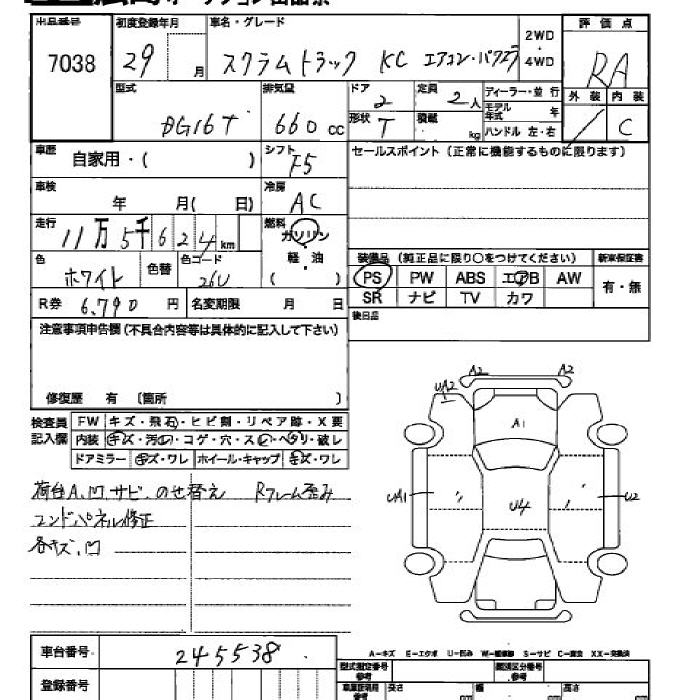 出品番号 初度登録年月 車名・グレード 2WD・4WD 評価点
7038 29 月 スクラムトラック KC エアコン・パワステ RA
型式 排気量 ドア 定員 ディーラー・並行 外装 内装
DG16T 660 cc 2 2人 モデル年式 年 / C
形状 T 積載 kg ハンドル 左・右
車歴 自家用・( ) シフト F5 セールスポイント (正常に機能するものに限ります)
車検 年 月( 日) 冷房 AC
走行 11万5千624km 燃料 ガソリン
色 ホワイト 色替 色コード 26U 軽・油 ( )
装備品 (純正品に限り○をつけてください) 新車保証書
PS PW ABS エアB AW 有・無
SR ナビ TV カワ
R券 6,790 円 名変期限 月 日
後日品
注意事項申告欄(不具合内容等は具体的に記入して下さい)
修復歴 有 (箇所 )
検査員記入欄 FW キズ・飛石・ヒビ割・リペア跡・X要
内装 キズ・汚れ・コゲ・穴・スレ・ヘタリ・破レ
ドアミラー キズ・ワレ ホイール・キャップ キズ・ワレ
荷台A,凹,サビ,のせ替え Rフレーム歪み
エンドパネル修正
各キズ,凹
A2 A2
UA2
A1
UA1 U4 U2
A-キズ E-エクボ U-凹み W-補修跡 S-サビ C-腐食 XX-交換済
車台番号 245538
型式指定番号 参考 類別区分番号 参考
登録番号 長さ 幅 高さ